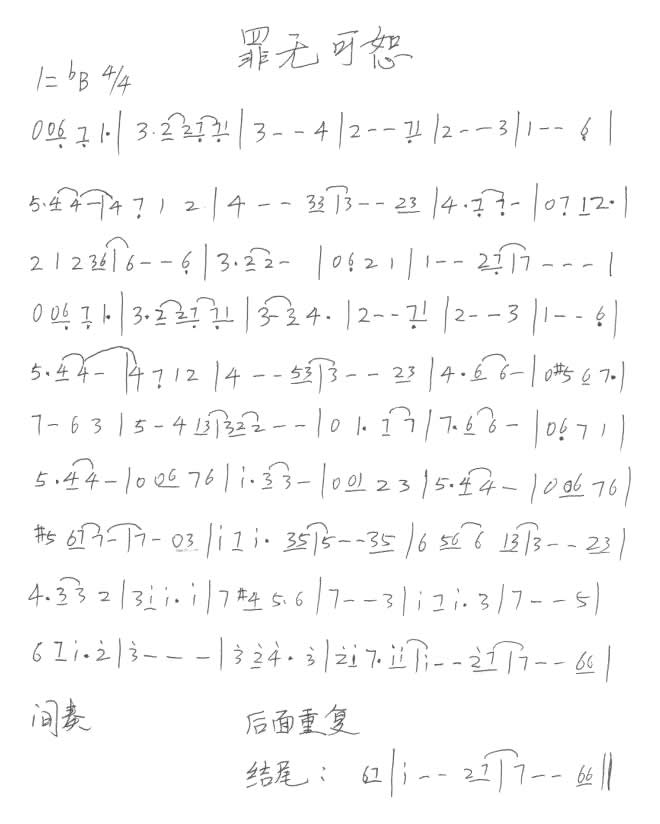 罪无可恕
1=bB 4/4
006 7 1·|3·2 27 71|3--4|2--71|2--3|1--6|
5·4 4-|4 7 1 2|4--33|3--23|4·7 7-|0 7 1 2·|
2 1 2 36|6--6|3·2 2-|0 6 2 1|1--27|7---|
0 06 7 1·|3·2 27 71|3-3 4·|2--71|2--3|1--6|
5·4 4-|4 7 1 2|4--53|3--23|4·6 6-|0 #5 6 7·|
7-6 3|5-4 13|32 2--|0 1·7 7|7·6 6-|0 6 7 1|
5·4 4-|0 06 76|i·3 3-|0 01 2 3|5·4 4-|0 06 76|
#5 67 7-|7-03|i 7 i·35|5--35|6 56 6 13|3--23|
4·3 3 2|3 i i·i|7 #4 5·6|7--3|i 7 i·3|7--5|
6 7 i·2|3---|3 2 4·3|2i 7·ii|i--27|7--66|
间奏 后面重复
结尾: 67|i--27|7--66‖